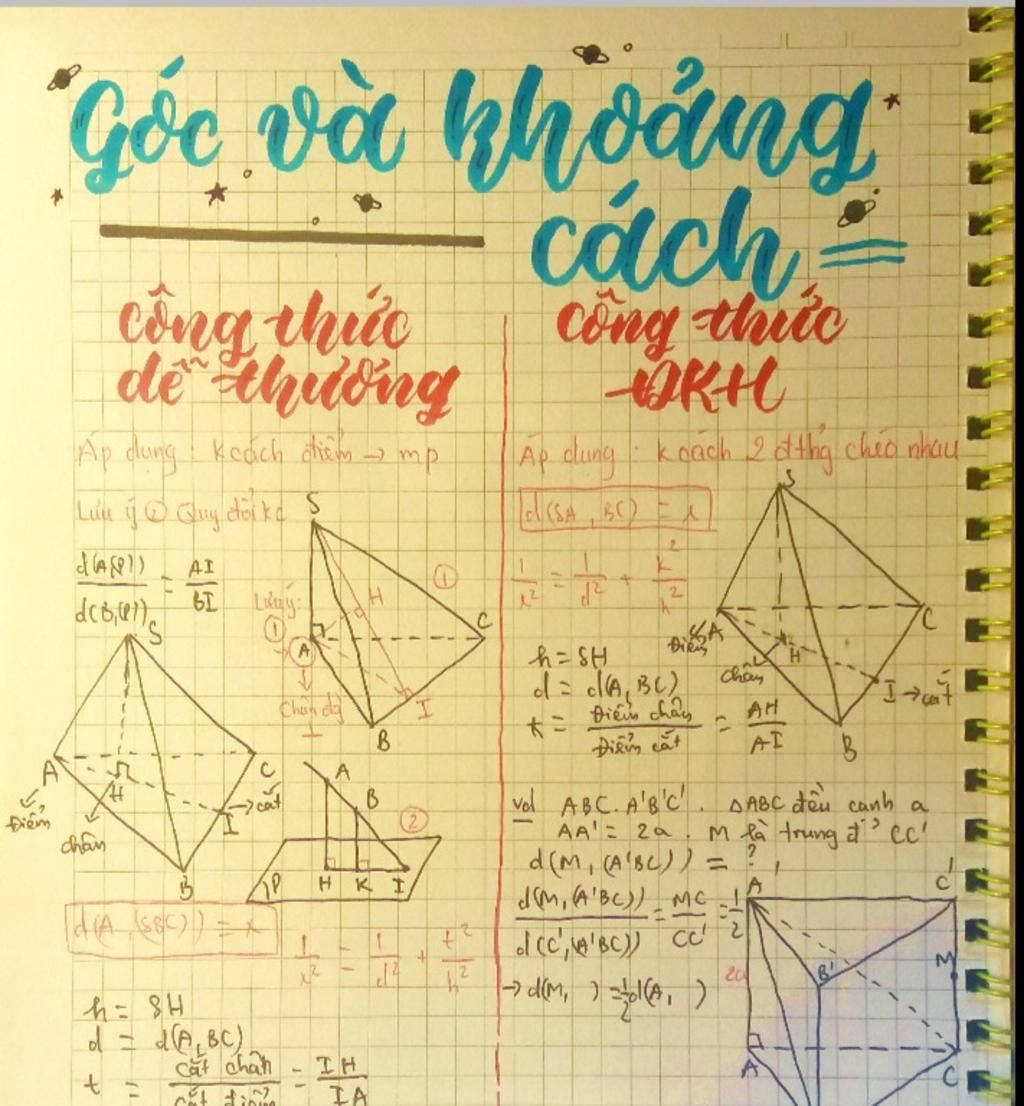 Góc và khoảng
cách
công thức
dễ thương
Áp dụng : k cách điểm → mp
Lưu ý ② Quy đổi kc
d(A,(P)) / d(B,(P)) = AI / BI
S
Lưu ý:
①
①
H
A
C
Chân đg
⊥
I
B
S
A
H
C
I → cắt
điểm
chân
B
A
B
②
P
H K I
d(A,(SBC)) = x
1/x² = 1/d² + t²/h²
h = SH
d = d(A,BC)
t = cắt chân / cắt điểm = IH / IA
công thức
ĐKH
Áp dụng : k cách 2 đthg chéo nhau
d(SA, BC) = x
1/x² = 1/d² + k²/h²
S
A
điểm
chân
H
C
I → cắt
B
h = SH
d = d(A, BC)
k = Điểm chân / Điểm cắt = AH / AI
vd ABC.A'B'C'. ΔABC đều cạnh a
AA' = 2a. M là trung đ' CC'
d(M, (A'BC)) = ?
d(M,(A'BC)) / d(C',(A'BC)) = MC / CC' = 1/2
→ d(M, ) = 1/2 d(A, )
A
C'
B'
M
2a
A
C